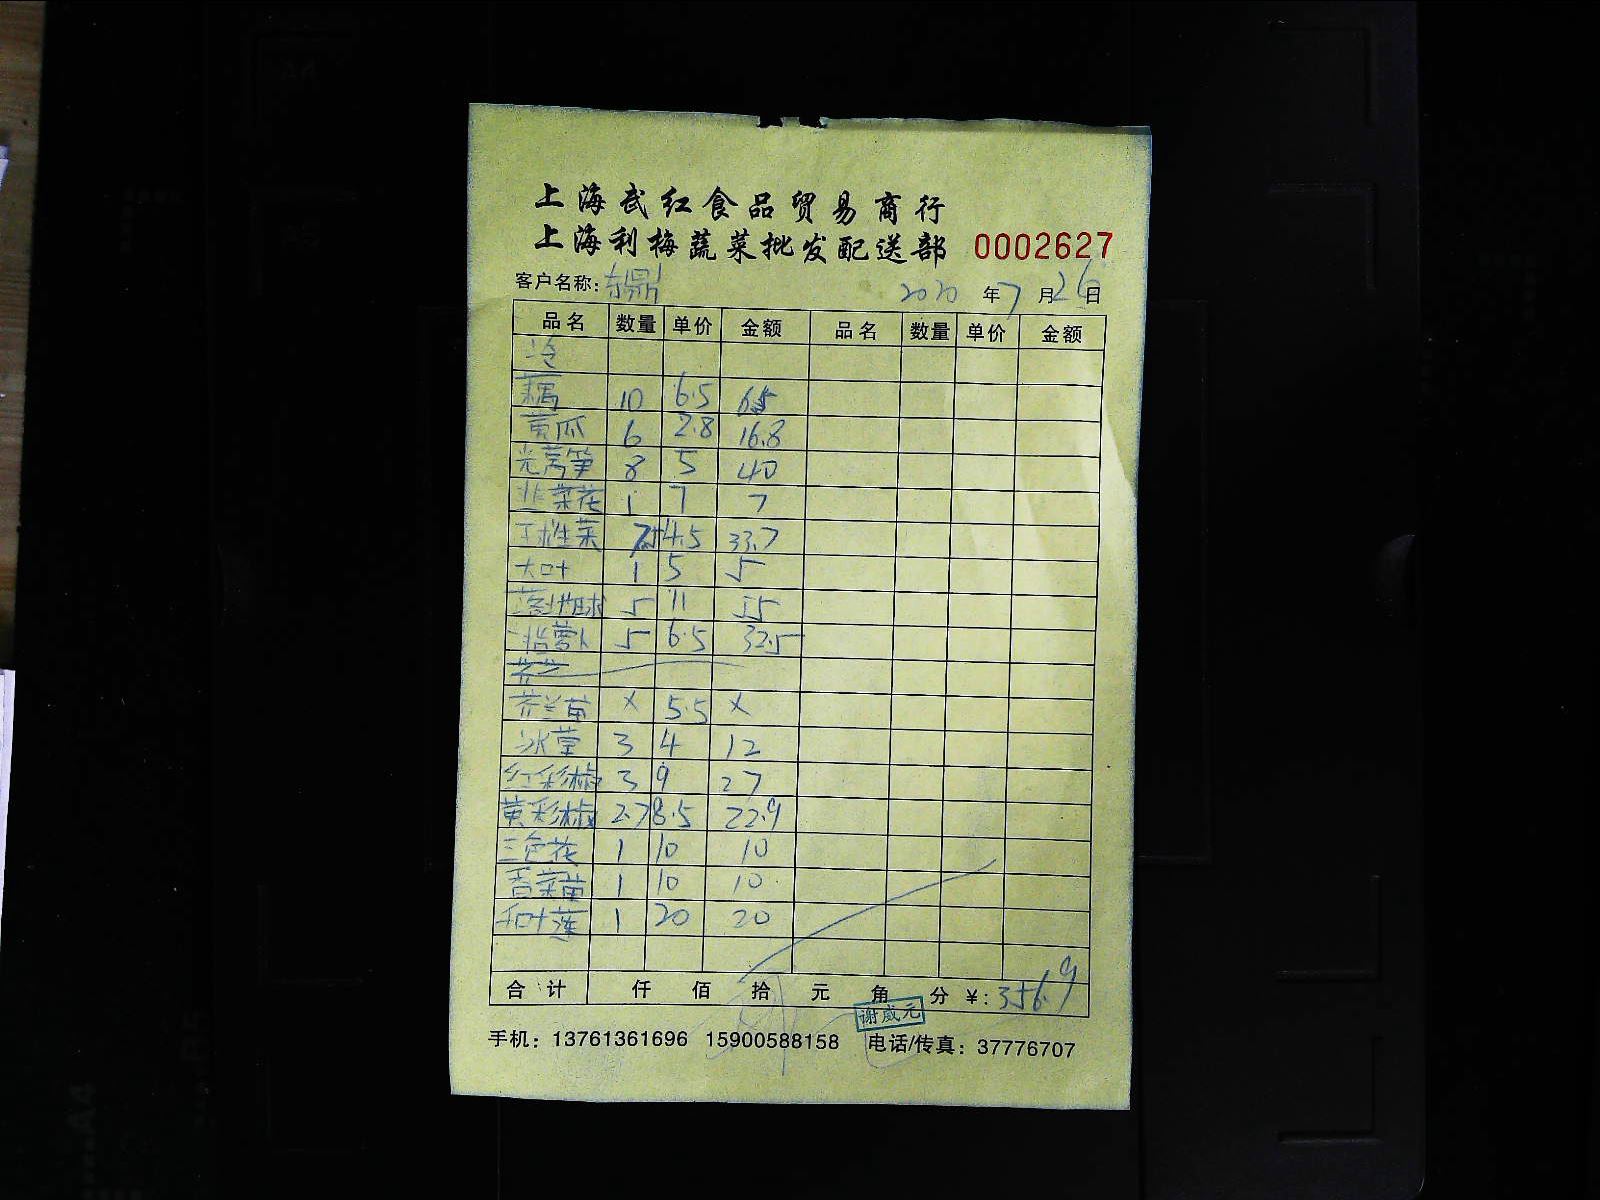 上海武红食品贸易商行
上海利梅蔬菜批发配送部 0002627
客户名称: 东鼎 2020 年 7 月 26 日
品名 数量 单价 金额 品名 数量 单价 金额
冷
藕 10 6.5 65
黄瓜 6 2.8 16.8
光莴笋 8 5 40
韭菜花 1 7 7
球生菜 7.5 4.5 33.7
大叶 1 5 5
5 11 55
萝卜 5 6.5 32.5
芥兰苗 × 5.5 ×
冰草 3 4 12
红彩椒 3 9 27
黄彩椒 2.7 8.5 22.9
三色花 1 10 10
香菜苗 1 10 10
叶莲 1 20 20
合计 仟 佰 拾 元 角 分 ¥: 356.9
谢威元
手机: 13761361696 15900588158 电话/传真: 37776707